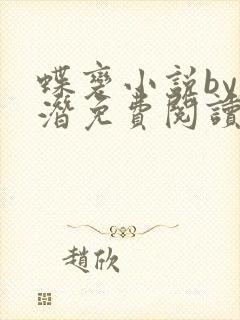 蝶裝小説by
潛免費閱讀
趙欣